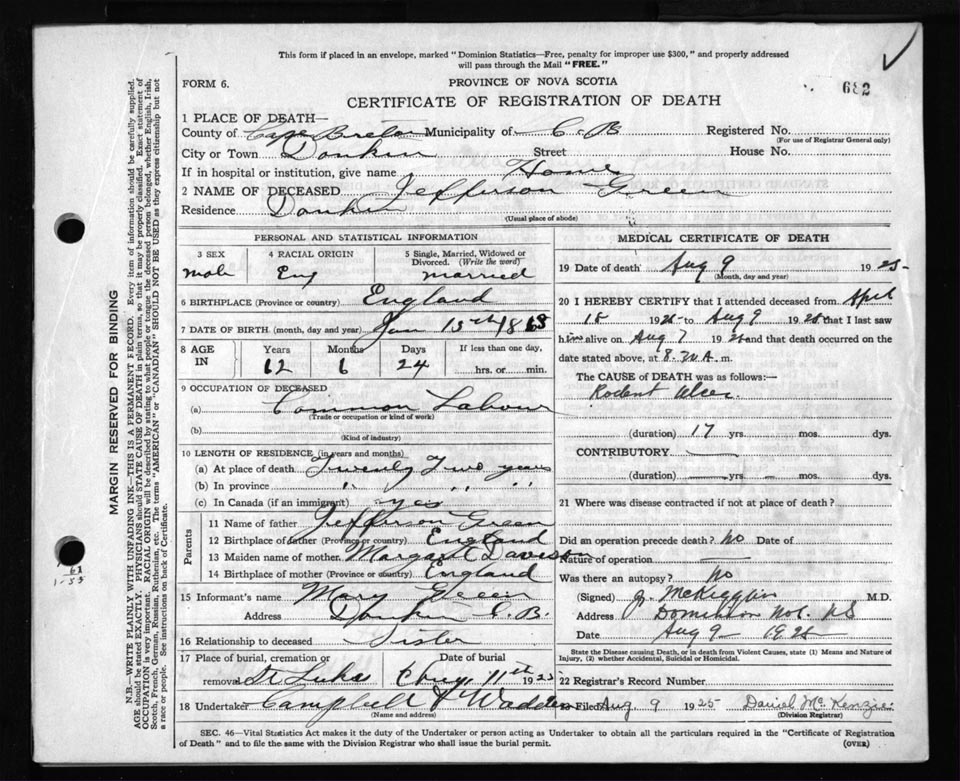 This form if placed in an envelope, marked "Dominion Statistics—Free, penalty for improper use $300," and properly addressed
will pass through the Mail "FREE."
FORM 6. PROVINCE OF NOVA SCOTIA 682
CERTIFICATE OF REGISTRATION OF DEATH
1 PLACE OF DEATH—
County of Cape Breton Municipality of C. B Registered No.
(For use of Registrar General only)
City or Town Donkin Street House No.
If in hospital or institution, give name Home
2 NAME OF DECEASED Jefferson Green
Residence Donkin
(Usual place of abode)
PERSONAL AND STATISTICAL INFORMATION
3 SEX 4 RACIAL ORIGIN 5 Single, Married, Widowed or
Divorced. (Write the word)
male Eng married
6 BIRTHPLACE (Province or country) England
7 DATE OF BIRTH (month, day and year) Jan 15th 1863
8 AGE IN Years Months Days If less than one day,
62 6 24 hrs. or min.
9 OCCUPATION OF DECEASED
(a) Common Labour
(Trade or occupation or kind of work)
(b)
(Kind of industry)
10 LENGTH OF RESIDENCE (in years and months)
(a) At place of death Twenty Two years
(b) In province " " "
(c) In Canada (if an immigrant) yes
Parents
11 Name of father Jefferson Green
12 Birthplace of father (Province or country) England
13 Maiden name of mother Margaret Davison
14 Birthplace of mother (Province or country) England
15 Informant's name Mary Green
Address Donkin C.B.
16 Relationship to deceased Sister
17 Place of burial, cremation or Date of burial
removal St Luks Aug 11th 1925
18 Undertaker Campbell & Wadden
(Name and address)
MEDICAL CERTIFICATE OF DEATH
19 Date of death Aug 9 1925
(Month, day and year)
20 I HEREBY CERTIFY that I attended deceased from April
18 1925 to Aug 9 1925 that I last saw
him alive on Aug 7 1925 and that death occurred on the
date stated above, at 8.20 A. m.
The CAUSE OF DEATH was as follows:—
Rodent Ulcer
(duration) 17 yrs. mos. dys.
CONTRIBUTORY
(duration) yrs. mos. dys.
21 Where was disease contracted if not at place of death?
Did an operation precede death? No Date of
Nature of operation
Was there an autopsy? No
(Signed) J. McKiggan M.D.
Address Dominion No1. NS
Date Aug 9 1925
State the Disease causing Death, or in death from Violent Causes, state (1) Means and Nature of
Injury, (2) whether Accidental, Suicidal or Homicidal.
22 Registrar's Record Number
Filed Aug. 9 1925 Daniel McKenzie
(Division Registrar)
SEC. 46—Vital Statistics Act makes it the duty of the Undertaker or person acting as Undertaker to obtain all the particulars required in the "Certificate of Registration
of Death" and to file the same with the Division Registrar who shall issue the burial permit. (OVER)
MARGIN RESERVED FOR BINDING
N.B.—WRITE PLAINLY WITH UNFADING INK—THIS IS A PERMANENT RECORD. Every item of information should be carefully supplied.
AGE should be stated EXACTLY. PHYSICIANS should STATE CAUSE OF DEATH in plain terms, so that it may be properly classified. Exact statement of
OCCUPATION is very important. RACIAL ORIGIN will be described by stating to what people or tongue the deceased person belonged, whether English, Irish,
Scotch, French, German, Russian, Ruthenian, etc. The terms "AMERICAN" or "CANADIAN" SHOULD NOT BE USED as they express citizenship but not
a race or people. See instructions on back of Certificate.